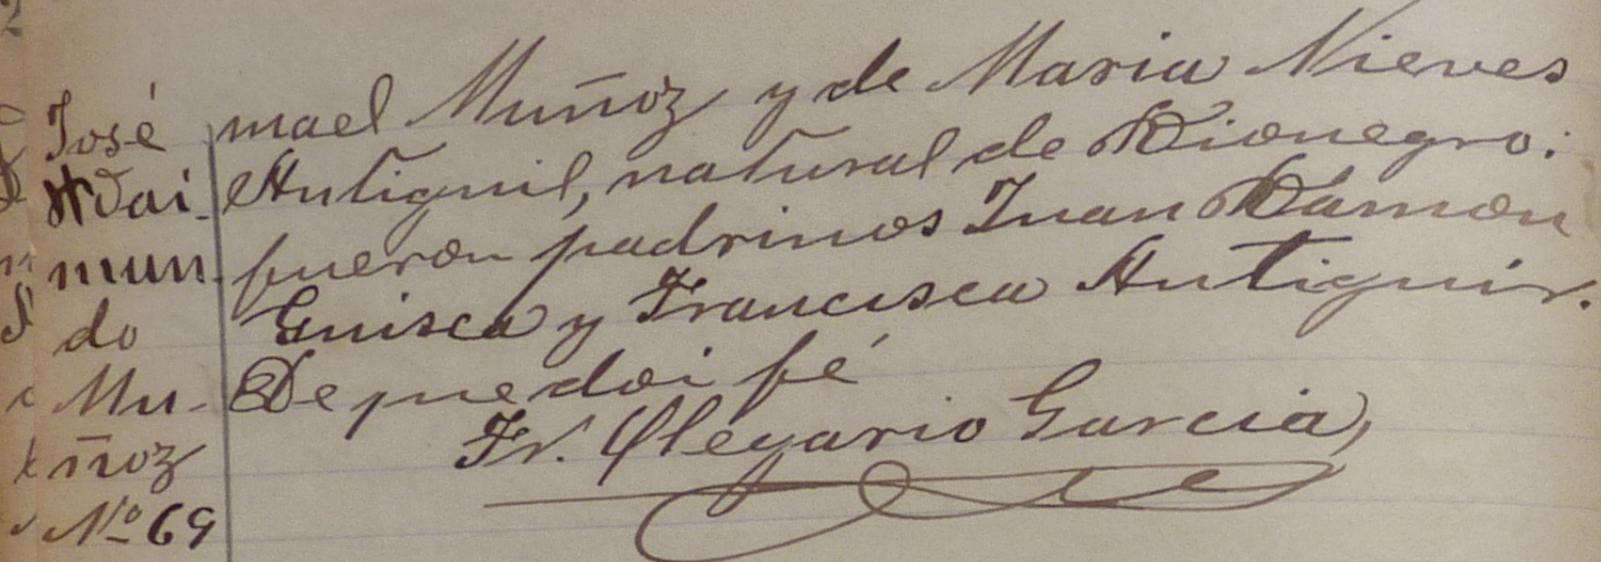 José
Rai-
mun-
do
Mu-
ñoz
Nº 69
mael Muñoz y de Maria Nieves
Antiguil, natural de Rionegro:
fueron padrinos Juan Ramon
Guisca y Francisca Antiguir.
De que doi fé
Fr. Olegario Garcia,